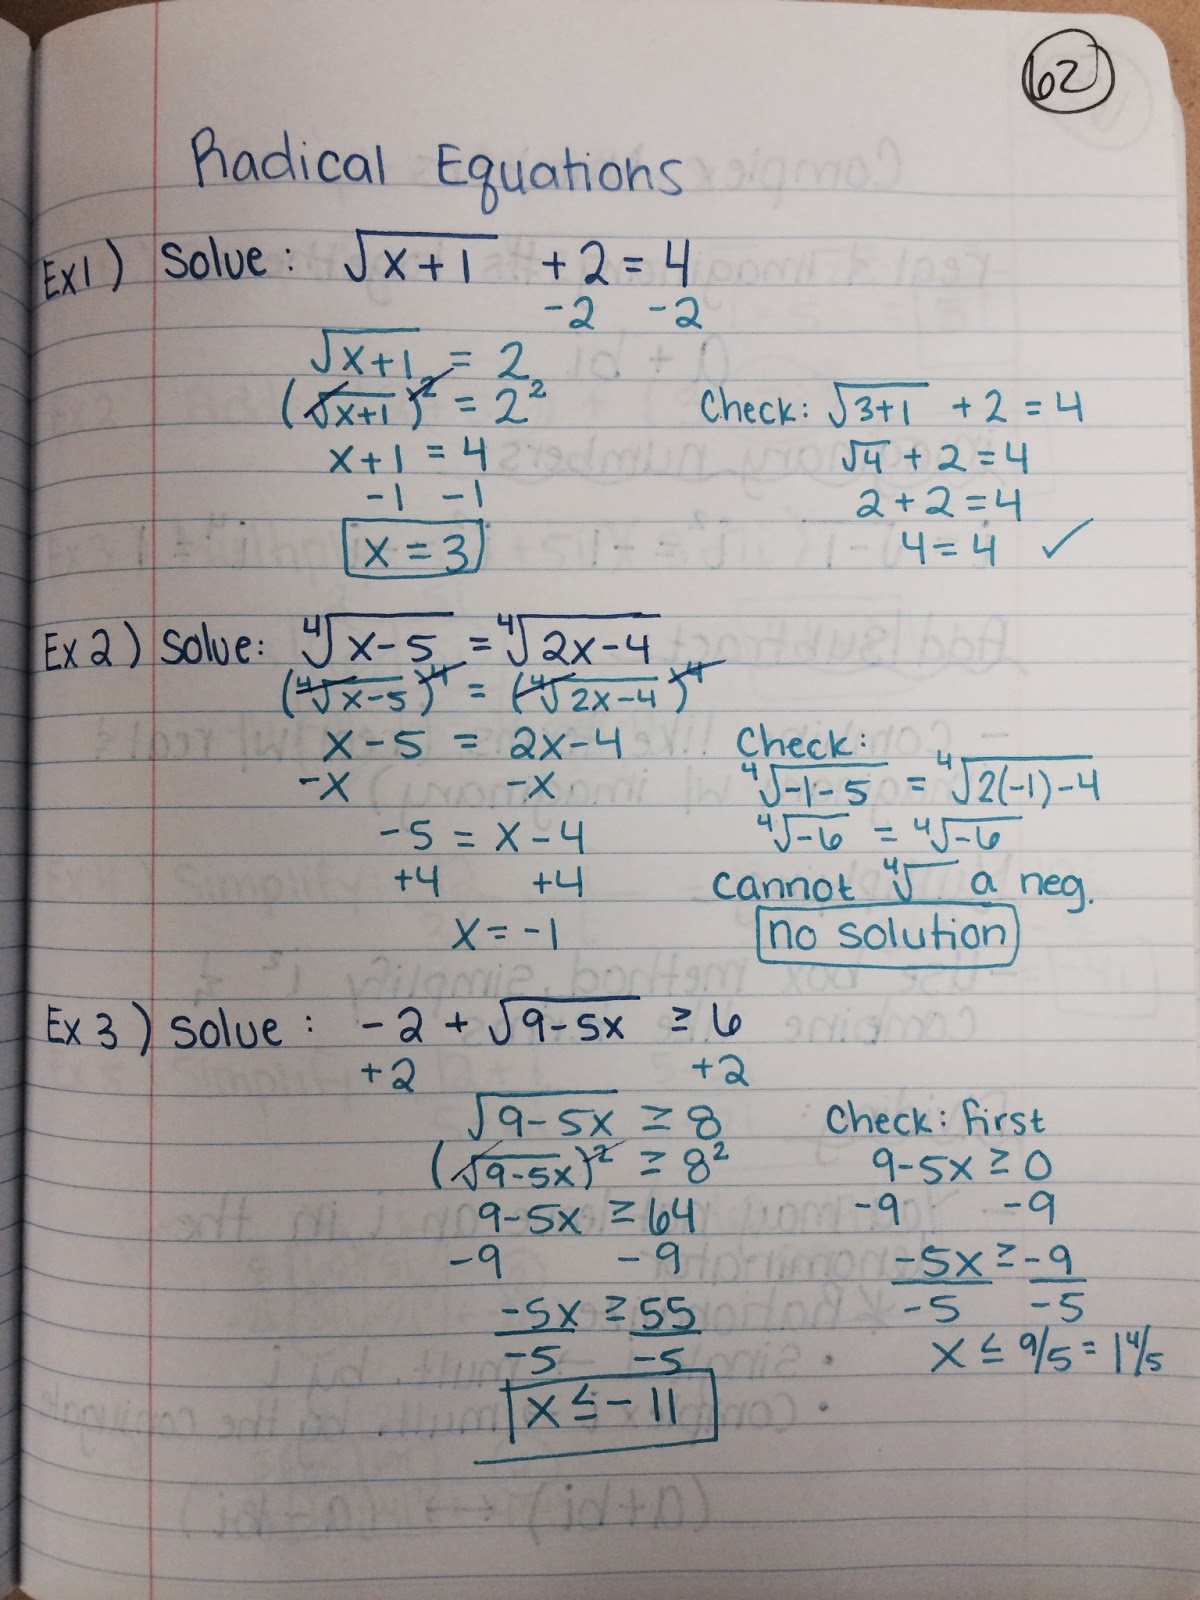 62
Radical Equations
Ex1) Solve: √x+1 +2=4
-2 -2
√x+1 = 2
(√x+1)² = 2²
x+1 = 4
-1 -1
x = 3
Check: √3+1 +2=4
√4 +2=4
2+2=4
4=4 ✓
Ex 2) Solve: ∜x-5 = ∜2x-4
(∜x-5)⁴ = (∜2x-4)⁴
x-5 = 2x-4
-x -x
-5 = x-4
+4 +4
x = -1
Check:
∜-1-5 = ∜2(-1)-4
∜-6 = ∜-6
cannot ∜ a neg.
no solution
Ex 3) Solve: -2 + √9-5x ≥ 6
+2 +2
√9-5x ≥ 8
(√9-5x)² ≥ 8²
9-5x ≥ 64
-9 -9
-5x ≥ 55
-5 -5
x ≤ -11
Check: first
9-5x ≥ 0
-9 -9
-5x ≥ -9
-5 -5
x ≤ 9/5 = 1 4/5